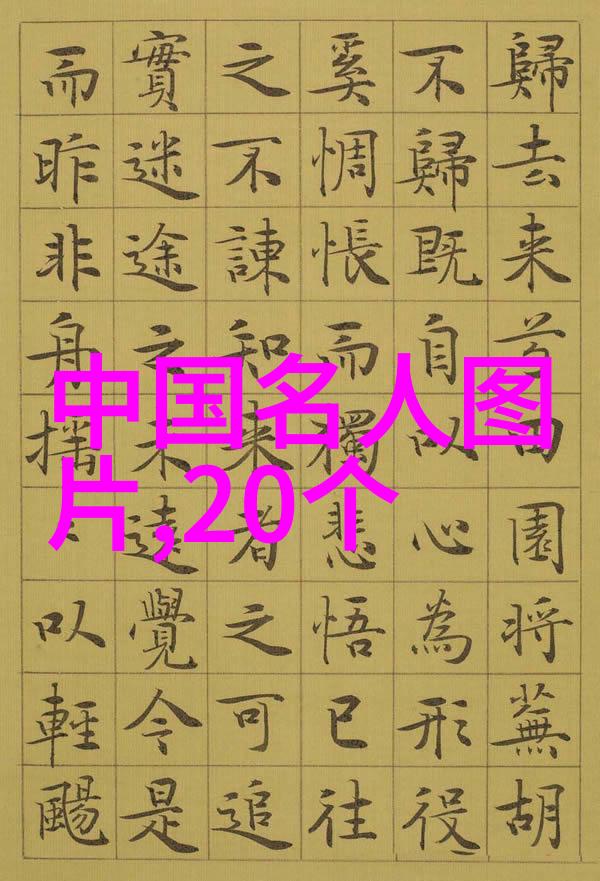 歸去来兮田園将蕪胡
不歸既自以心為形役
奚惆悵而獨悲悟已往
之不諫知来者之可追
實迷途之未遠覺今是
而昨非舟摇〻以輕颺
中国名人图
片,20个